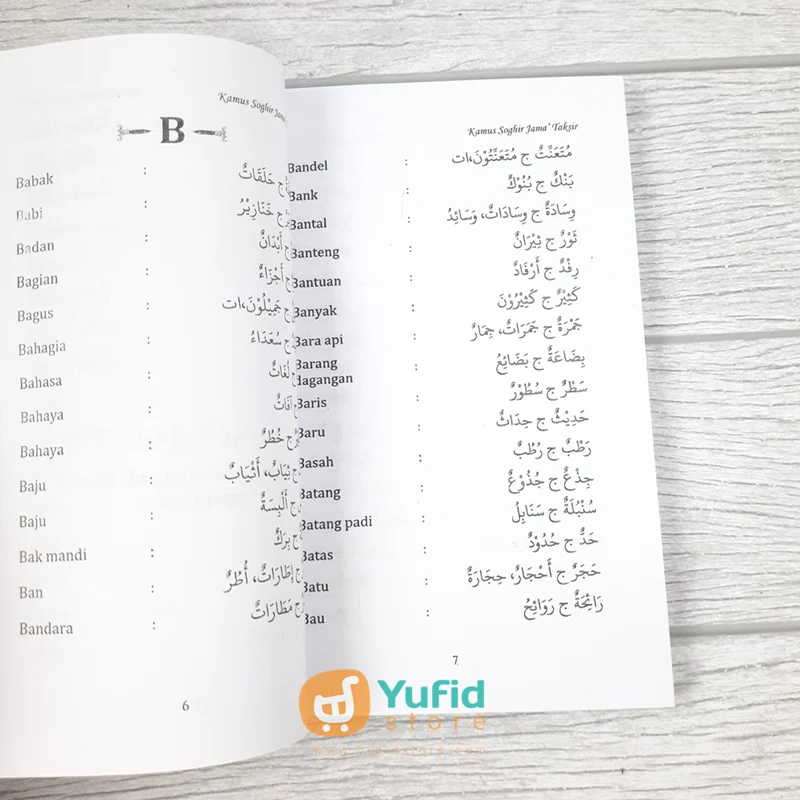 Kamus Soghir Jama'
B
Babak : ج حَلَقَاتٌ
Babi : ج خَنَازِيْرُ
Badan : ج أَبْدَانٌ
Bagian : ج أَجْزَاءٌ
Bagus : ج جَمِيْلُوْنَ،ات
Bahagia : ج سُعَدَاءُ
Bahasa : ج لُغَاتٌ
Bahaya : ج آفَاتٌ
Bahaya : ج خُطُرٌ
Baju : ج ثِيَابٌ، أَثْيَابٌ
Baju : ج أَلْبِسَةٌ
Bak mandi : ج بِرَكٌ
Ban : ج إِطَارَاتٌ، أُطُرٌ
Bandara : ج مَطَارَاتٌ
6
Kamus Soghir Jama' Taksir
Bandel : مُتَعَنِّتٌ ج مُتَعَنِّتُوْنَ،ات
Bank : بَنْكٌ ج بُنُوْكٌ
Bantal : وِسَادَةٌ ج وِسَادَاتٌ، وَسَائِدُ
Banteng : ثَوْرٌ ج ثِيْرَانٌ
Bantuan : رِفْدٌ ج أَرْفَادٌ
Banyak : كَثِيْرٌ ج كَثِيْرُوْنَ
Bara api : جَمْرَةٌ ج جَمَرَاتٌ، جِمَارٌ
Barang : بِضَاعَةٌ ج بَضَائِعُ
dagangan
Baris : سَطْرٌ ج سُطُوْرٌ
Baru : حَدِيْثٌ ج حِدَاثٌ
Basah : رَطْبٌ ج رُطُبٌ
Batang : جِذْعٌ ج جُذُوْعٌ
Batang padi : سُنْبُلَةٌ ج سَنَابِلُ
Batas : حَدٌّ ج حُدُوْدٌ
Batu : حَجَرٌ ج أَحْجَارٌ، حِجَارَةٌ
Bau : رَائِحَةٌ ج رَوَائِحُ
7
Yufid
store